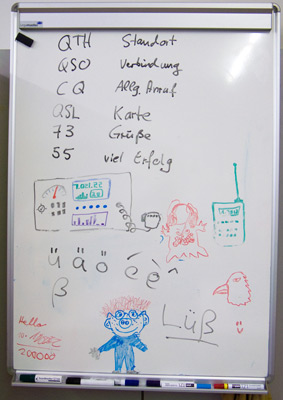 QTH Standort
QSO Verbindung
CQ Allg. Anruf
QSL Karte
73 Grüße
55 viel Erfolg
ü ä ö é è ^
ß
Lüß
Hello
200000